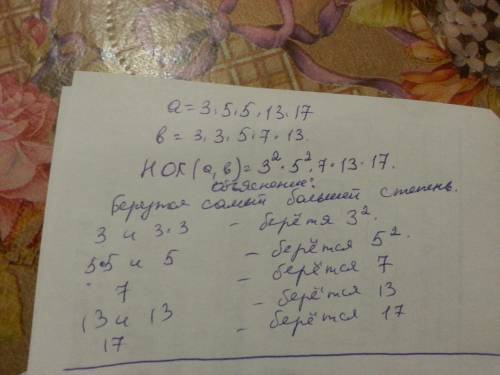 a = 3 · 5 · 5 · 13 · 17
в = 3 · 3 · 5 · 7 · 13.
НОК (а, в) = 3² · 5² · 7 · 13 · 17.
объяснение:
Берутся самый большей степень.
3 и 3·3 – берётя 3².
5·5 и 5 – берётся 5².
7 – берётся 7
13 и 13 – берётся 13
17 – берётся 17